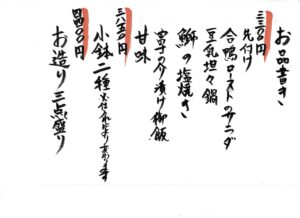 お品書き
三三〇〇円
先付け
合鴨ローストのサラダ
豆乳坦々鍋
鰤の塩焼き
雲子の介漬け御飯
甘味
三八五〇円
小鉢二種
四四〇〇円
お造り三点盛り